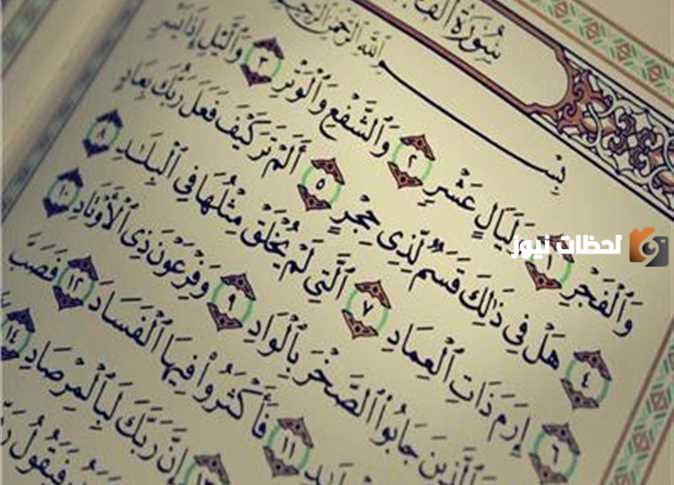 سُورَةُ
بِسْمِ ٱللَّهِ ٱلرَّحْمَٰنِ ٱلرَّحِيمِ
وَٱلْفَجْرِ ١ وَلَيَالٍ عَشْرٍ ٢ وَٱلشَّفْعِ وَٱلْوَتْرِ ٣ وَٱلَّيْلِ إِذَا يَسْرِ
٤ هَلْ فِى ذَٰلِكَ قَسَمٌ لِّذِى حِجْرٍ ٥ أَلَمْ تَرَ كَيْفَ فَعَلَ رَبُّكَ بِعَادٍ
٦ إِرَمَ ذَاتِ ٱلْعِمَادِ ٧ ٱلَّتِى لَمْ يُخْلَقْ مِثْلُهَا فِى ٱلْبِلَٰدِ ٨
ٱلَّذِينَ جَابُوا۟ ٱلصَّخْرَ بِٱلْوَادِ ٩ وَفِرْعَوْنَ ذِى ٱلْأَوْتَادِ ١٠
١١ فَأَكْثَرُوا۟ فِيهَا ٱلْفَسَادَ ١٢ فَصَبَّ
إِنَّ رَبَّكَ لَبِٱلْمِرْصَادِ ١٤
فَيَقُولُ
لحظات نيوز